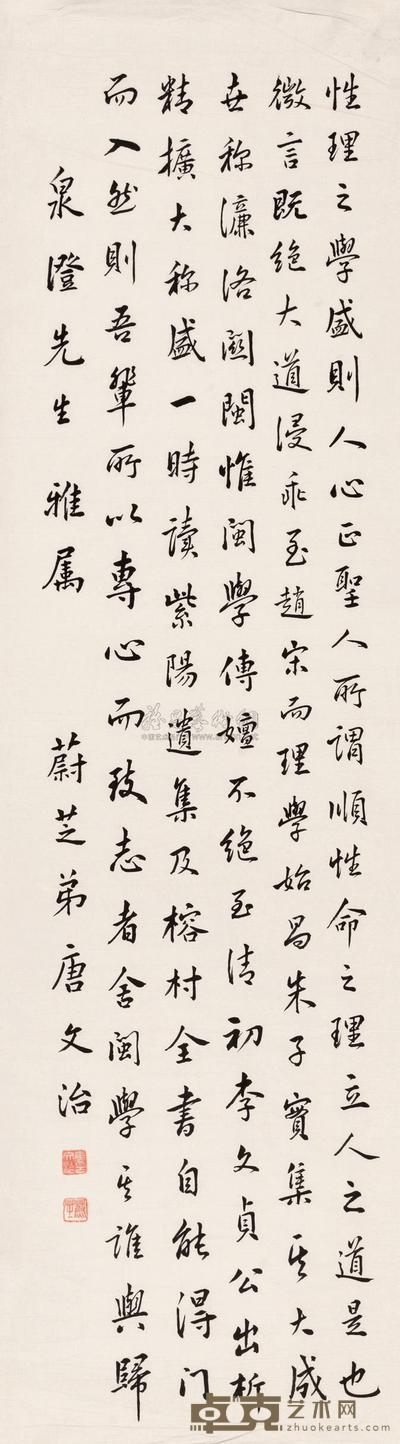 性理之學盛則人心正聖人所謂順性命之理立人之道是也
微言既絕大道浸乖至趙宋而理學始昌朱子實集其大成
世称濂洛關閩惟閩學傳嬗不絕至清初李文貞公出析
精擴大称盛一時讀紫陽遺集及榕村全書自能得门
而入然則吾輩所以專心而致志者舍閩學其誰與歸
泉澄先生雅属
蔚芝弟唐文治
卓克艺术网
zhuokearts.com